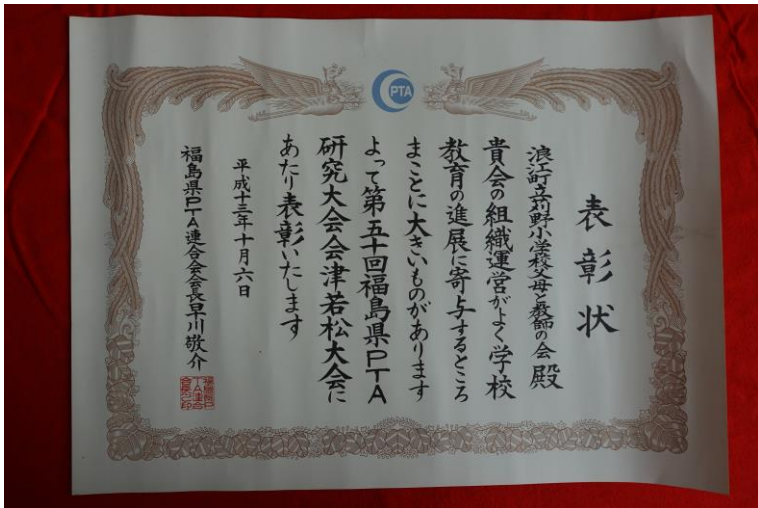 PTA
表彰状
浪江町立苅野小学校父母と教師の会 殿
貴会の組織運営がよく学校
教育の進展に寄与するところ
まことに大きいものがあります
よって第五十回福島県PTA
研究大会会津若松大会に
あたり表彰いたします
平成十三年十月六日
福島県PTA連合会会長早川敬介